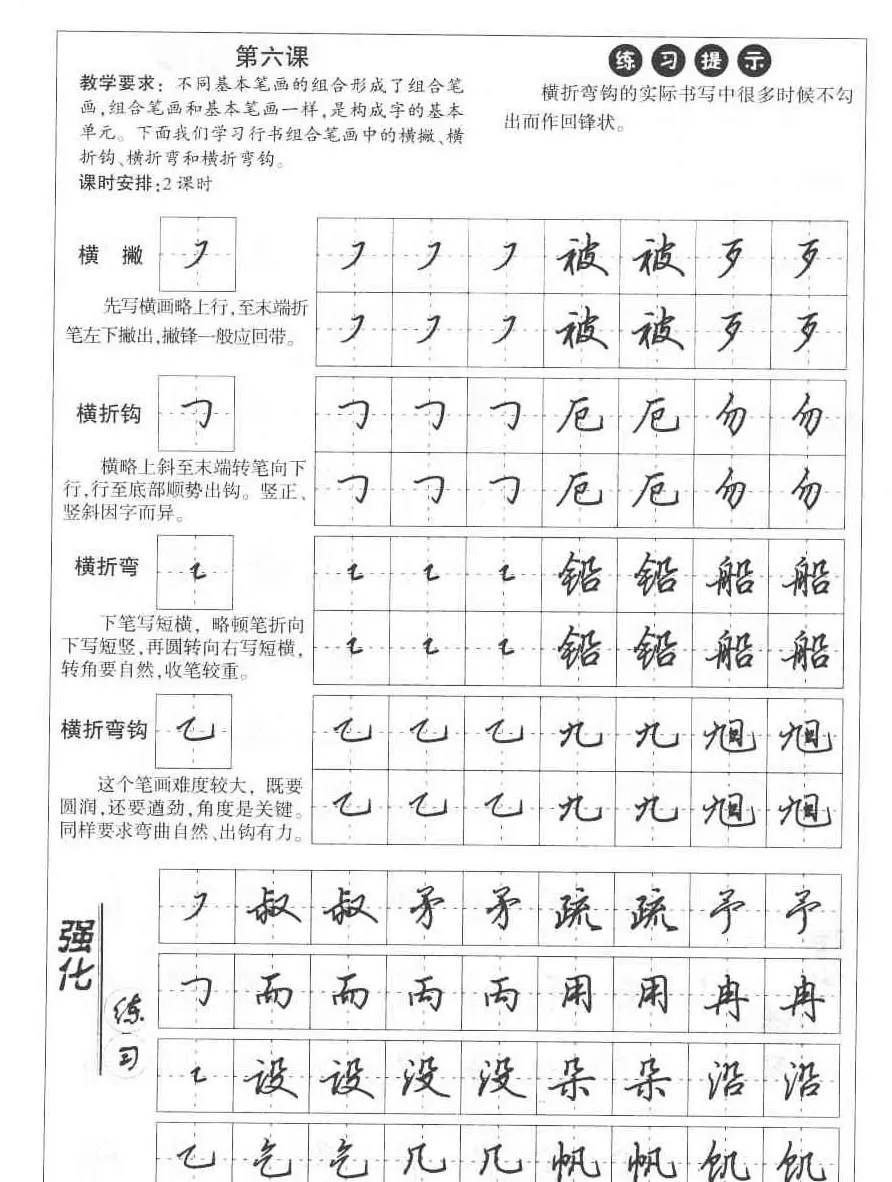 第六课
教学要求：不同基本笔画的组合形成了组合笔
画，组合笔画和基本笔画一样，是构成字的基本
单元。下面我们学习行书组合笔画中的横撇、横
折钩、横折弯和横折弯钩。
课时安排：2 课时
练习提示
横折弯钩的实际书写中很多时候不勾
出而作回锋状。
横 撇
㇇ ㇇ ㇇ ㇇ 被 被 歹 歹
㇇ ㇇ ㇇ 被 被 歹 歹
先写横画略上行，至末端折
笔左下撇出，撇锋一般应回带。
横折钩
㇆ ㇆ ㇆ ㇆ 厄 厄 勿 勿
㇆ ㇆ ㇆ 厄 厄 勿 勿
横略上斜至末端转笔向下
行，行至底部顺势出钩。竖正、
竖斜因字而异。
横折弯
㇍ ㇍ ㇍ ㇍ 铅 铅 船 船
㇍ ㇍ ㇍ 铅 铅 船 船
下笔写短横，略顿笔折向
下写短竖，再圆转向右写短横，
转角要自然，收笔较重。
横折弯钩
乙 乙 乙 乙 九 九 旭 旭
乙 乙 乙 九 九 旭 旭
这个笔画难度较大，既要
圆润，还要遒劲，角度是关键。
同样要求弯曲自然、出钩有力。
强化
练习
㇇ 叔 叔 矛 矛 疏 疏 予 予
㇆ 而 而 丙 丙 用 用 冉 冉
㇍ 设 设 没 没 朵 朵 沿 沿
乙 气 气 几 几 帆 帆 饥 饥